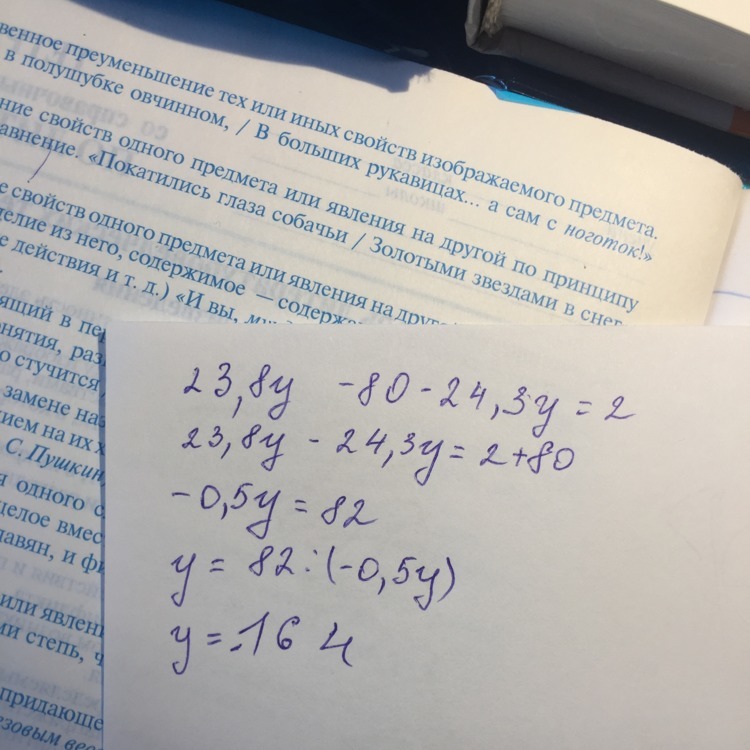 венное преуменьшение тех или иных свойств изображаемого предмета.
в полушубке овчинном, / В больших рукавицах... а сам с ноготок!»
ние свойств одного предмета или явления на другой по принципу
авнение. «Покатились глаза собачьи / Золотыми звездами в снег
е свойств одного предмета или явления на друго
делие из него, содержимое — содержа
е действия и т. д.) «И вы,
ящий в пе
нятия, раз
о стучится
замене на
ием на их
С. Пушкин
я одного с
целое вмес
лавян, и фи
или явлен
ми степь, ч
придающе
езовым вес
23,8y -80-24,3y=2
23,8y - 24,3y=2+80
-0,5y=82
y= 82:(-0,5y)
y=-164